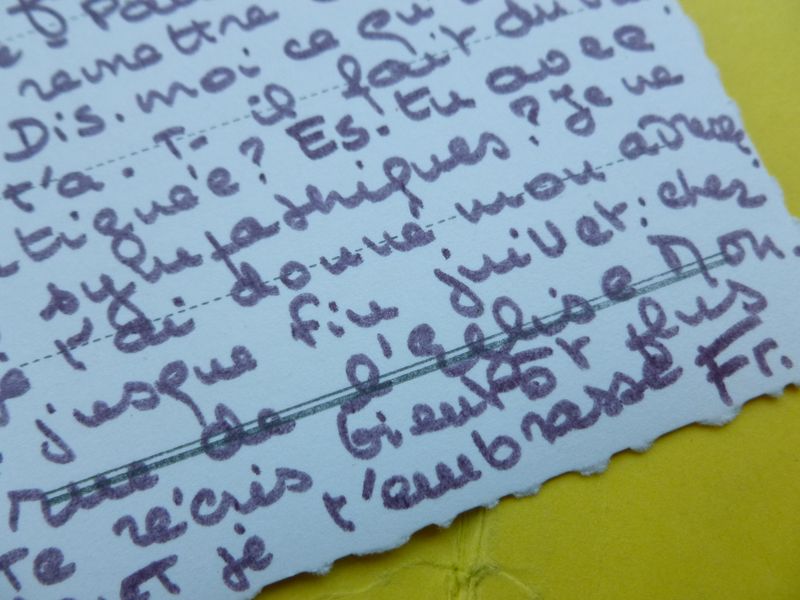 remettre
Dis.moi ce qu
t'a.T-il fair du
tiguée? Es.tu avec
sympathiques? Je ne
t'ai donné mon adresse
jusque fin juillet: chez
rue de l'église Mon.
Te récris bientôt plus
je t'embrasse Fr.